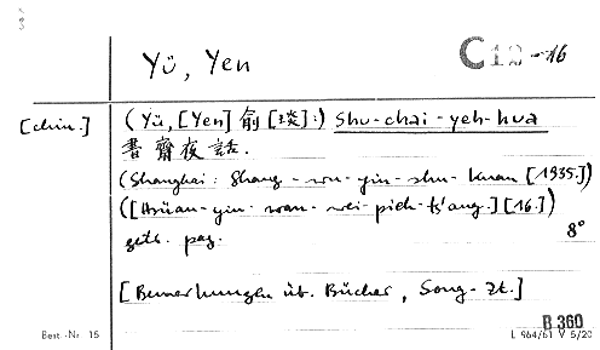 Yü, Yen
C 12-16
[chin.]
(Yü, [Yen] 俞[琰]:) Shu-chai-yeh-hua
書齋夜話.
(Shanghai: Shang-wu-yin-shu-kuan [1935.])
([Hsüan-yin-wan-wei-pieh-ts'ang.] [16.])
getr. pag.
8°
[Bemerkungen üb. Bücher, Song-Zt.]
B 360
Best.-Nr. 15
L 964/61 V 5/20